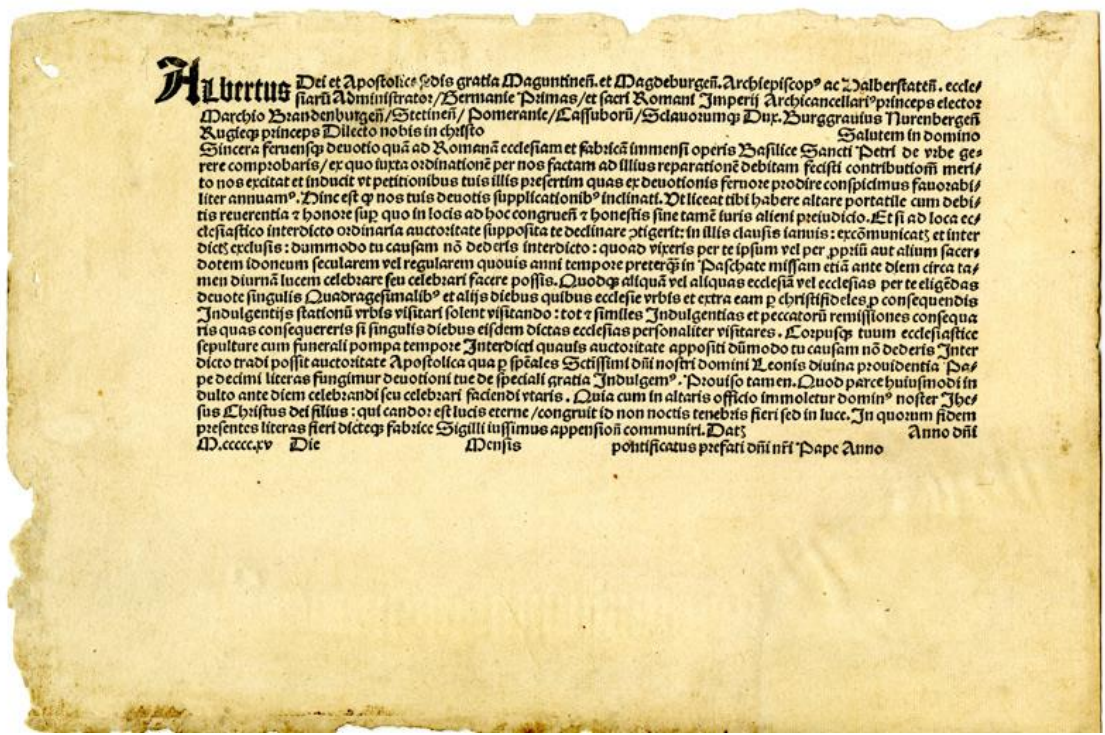 ALbertus Dei et Apostolice sedis gratia Maguntineñ. et Magdeburgeñ. Archiepiscopꝰ ac Halberstateñ. eccle⸗
siarū Administrator/Germanie Primas/et sacri Romani Imperij Archicancellariꝰ princeps elector
Marchio Brandenburgeñ/Stetineñ/Pomeranie/Cassuborū/Sclauorumqꝫ Dux. Burggrauius Nurenbergeñ
Rugieqꝫ princeps Dilecto nobis in christo Salutem in domino
Sincera feruensqꝫ deuotio quā ad Romanā ecclesiam et fabricā immensi operis Basilice Sancti Petri de vrbe ge⸗
rere comprobaris/ex quo iuxta ordinationē per nos factam ad illius reparationē debitam fecisti contributioñ meri⸗
to nos excitat et inducit vt petitionibus tuis illis presertim quas ex deuotionis feruore prodire conspicimus fauorabi⸗
liter annuamꝰ. Hinc est ꝙ nos tuis deuotis supplicationibꝰ inclinati. Vt liceat tibi habere altare portatile cum debi⸗
tis reuerentia ⁊ honore suꝑ quo in locis ad hoc congrueñ ⁊ honestis sine tamē iuris alieni preiudicio. Et si ad loca ec⸗
clesiastico interdicto ordinaria auctoritate supposita te declinare ↄtigerit: in illis clausis ianuis: excōmunicatꝫ et inter
dictꝫ exclusis: dummodo tu causam nō dederis interdicto: quoad vixeris per te ipsum vel per ꝓpriū aut alium sacer⸗
dotem idoneum secularem vel regularem quouis anni tempore preterqꝫ̃ in Paschate missam etiā ante diem circa ta⸗
men diurnā lucem celebrare seu celebrari facere possis. Quodqꝫ aliquā vel aliquas ecclesiā vel ecclesias per te eligēdas
deuote singulis Quadragesimalibꝰ et alijs diebus quibus ecclesie vrbis et extra eam ꝑ christifideles ꝓ consequendis
Indulgentijs stationū vrbis visitari solent visitando: tot ⁊ similes Indulgentias et peccatorū remissiones consequa
ris quas consequereris si singulis diebus eisdem dictas ecclesias personaliter visitares. Corpusqꝫ tuum ecclesiastice
sepulture cum funerali pompa tempore Interdicti quauis auctoritate appositi dūmodo tu causam nō dederis Inter
dicto tradi possit auctoritate Apostolica qua ꝑ spēales Sctissimi dñi nostri domini Leonis diuina prouidentia Pa⸗
pe decimi literas fungimur deuotioni tue de speciali gratia Indulgemꝰ. Prouiso tamen. Quod parce huiusmodi in
dulto ante diem celebrandi seu celebrari faciendi vtaris. Quia cum in altaris officio immoletur dominꝰ noster Ihe⸗
sus Christus dei filius: qui candor est lucis eterne/congruit id non noctis tenebris fieri sed in luce. In quorum fidem
presentes literas fieri dicteqꝫ fabrice Sigilli iussimus appensioñ communiri. Datꝫ Anno dñi
M.ccccc.xv Die Mensis pontificatus prefati dñi nr̄i Pape Anno